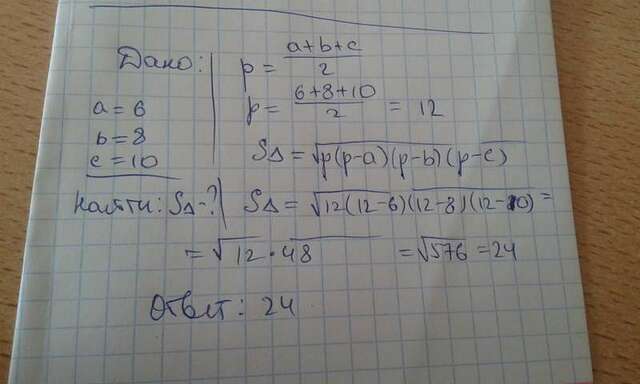 Дано:
a = 6
b = 8
c = 10
Найти: S∆ - ?
p = a+b+c / 2
p = 6+8+10 / 2 = 12
S∆ = √p(p-a)(p-b)(p-c)
S∆ = √12(12-6)(12-8)(12-10) =
= √12·48 = √576 = 24
Ответ: 24